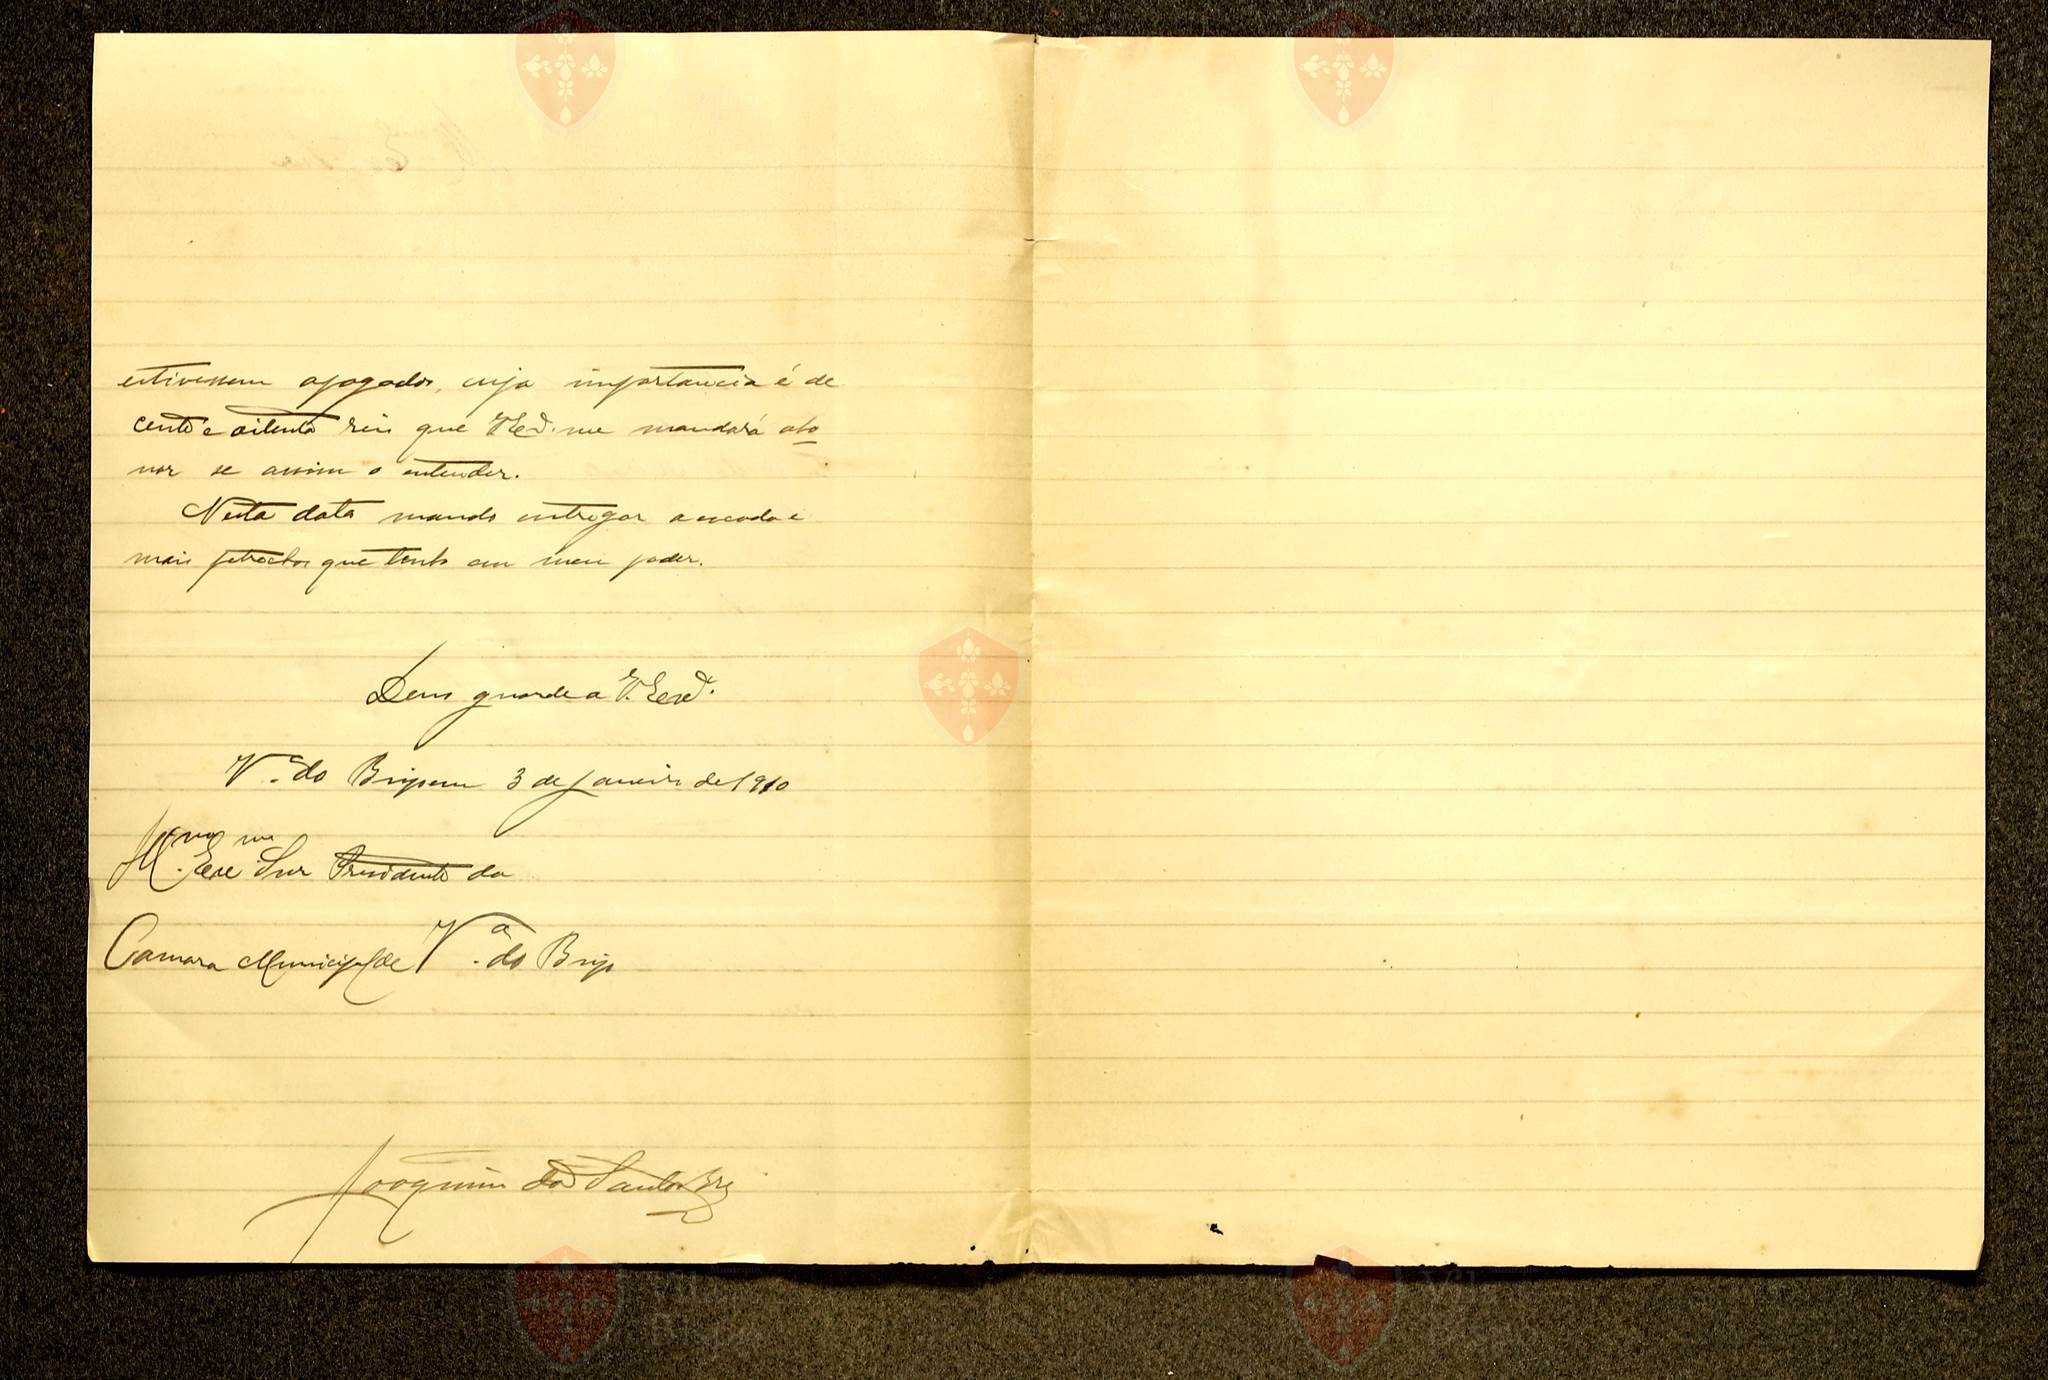 estivessem apagados, cuja importancia é de
cento e oitenta reis que V Exª. me mandará abo
nar se assim o entender.
Nesta data mando entregar a escada e
mais petrechos que tenho em meu poder.
Deus guarde a V. Exª.
Vª. do Bispo em 3 de Janeiro de 1910
Illmo. Exmo Snr Presidente da
Camara Municipal de Vª. do Bispo
Joaquim dos Santos
Vila
Bispo
Vila
Bispo